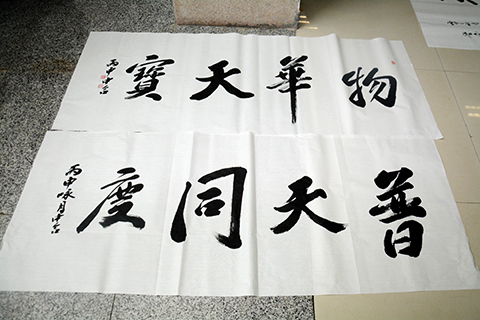 物華天寶
丙申
普天同慶
丙申